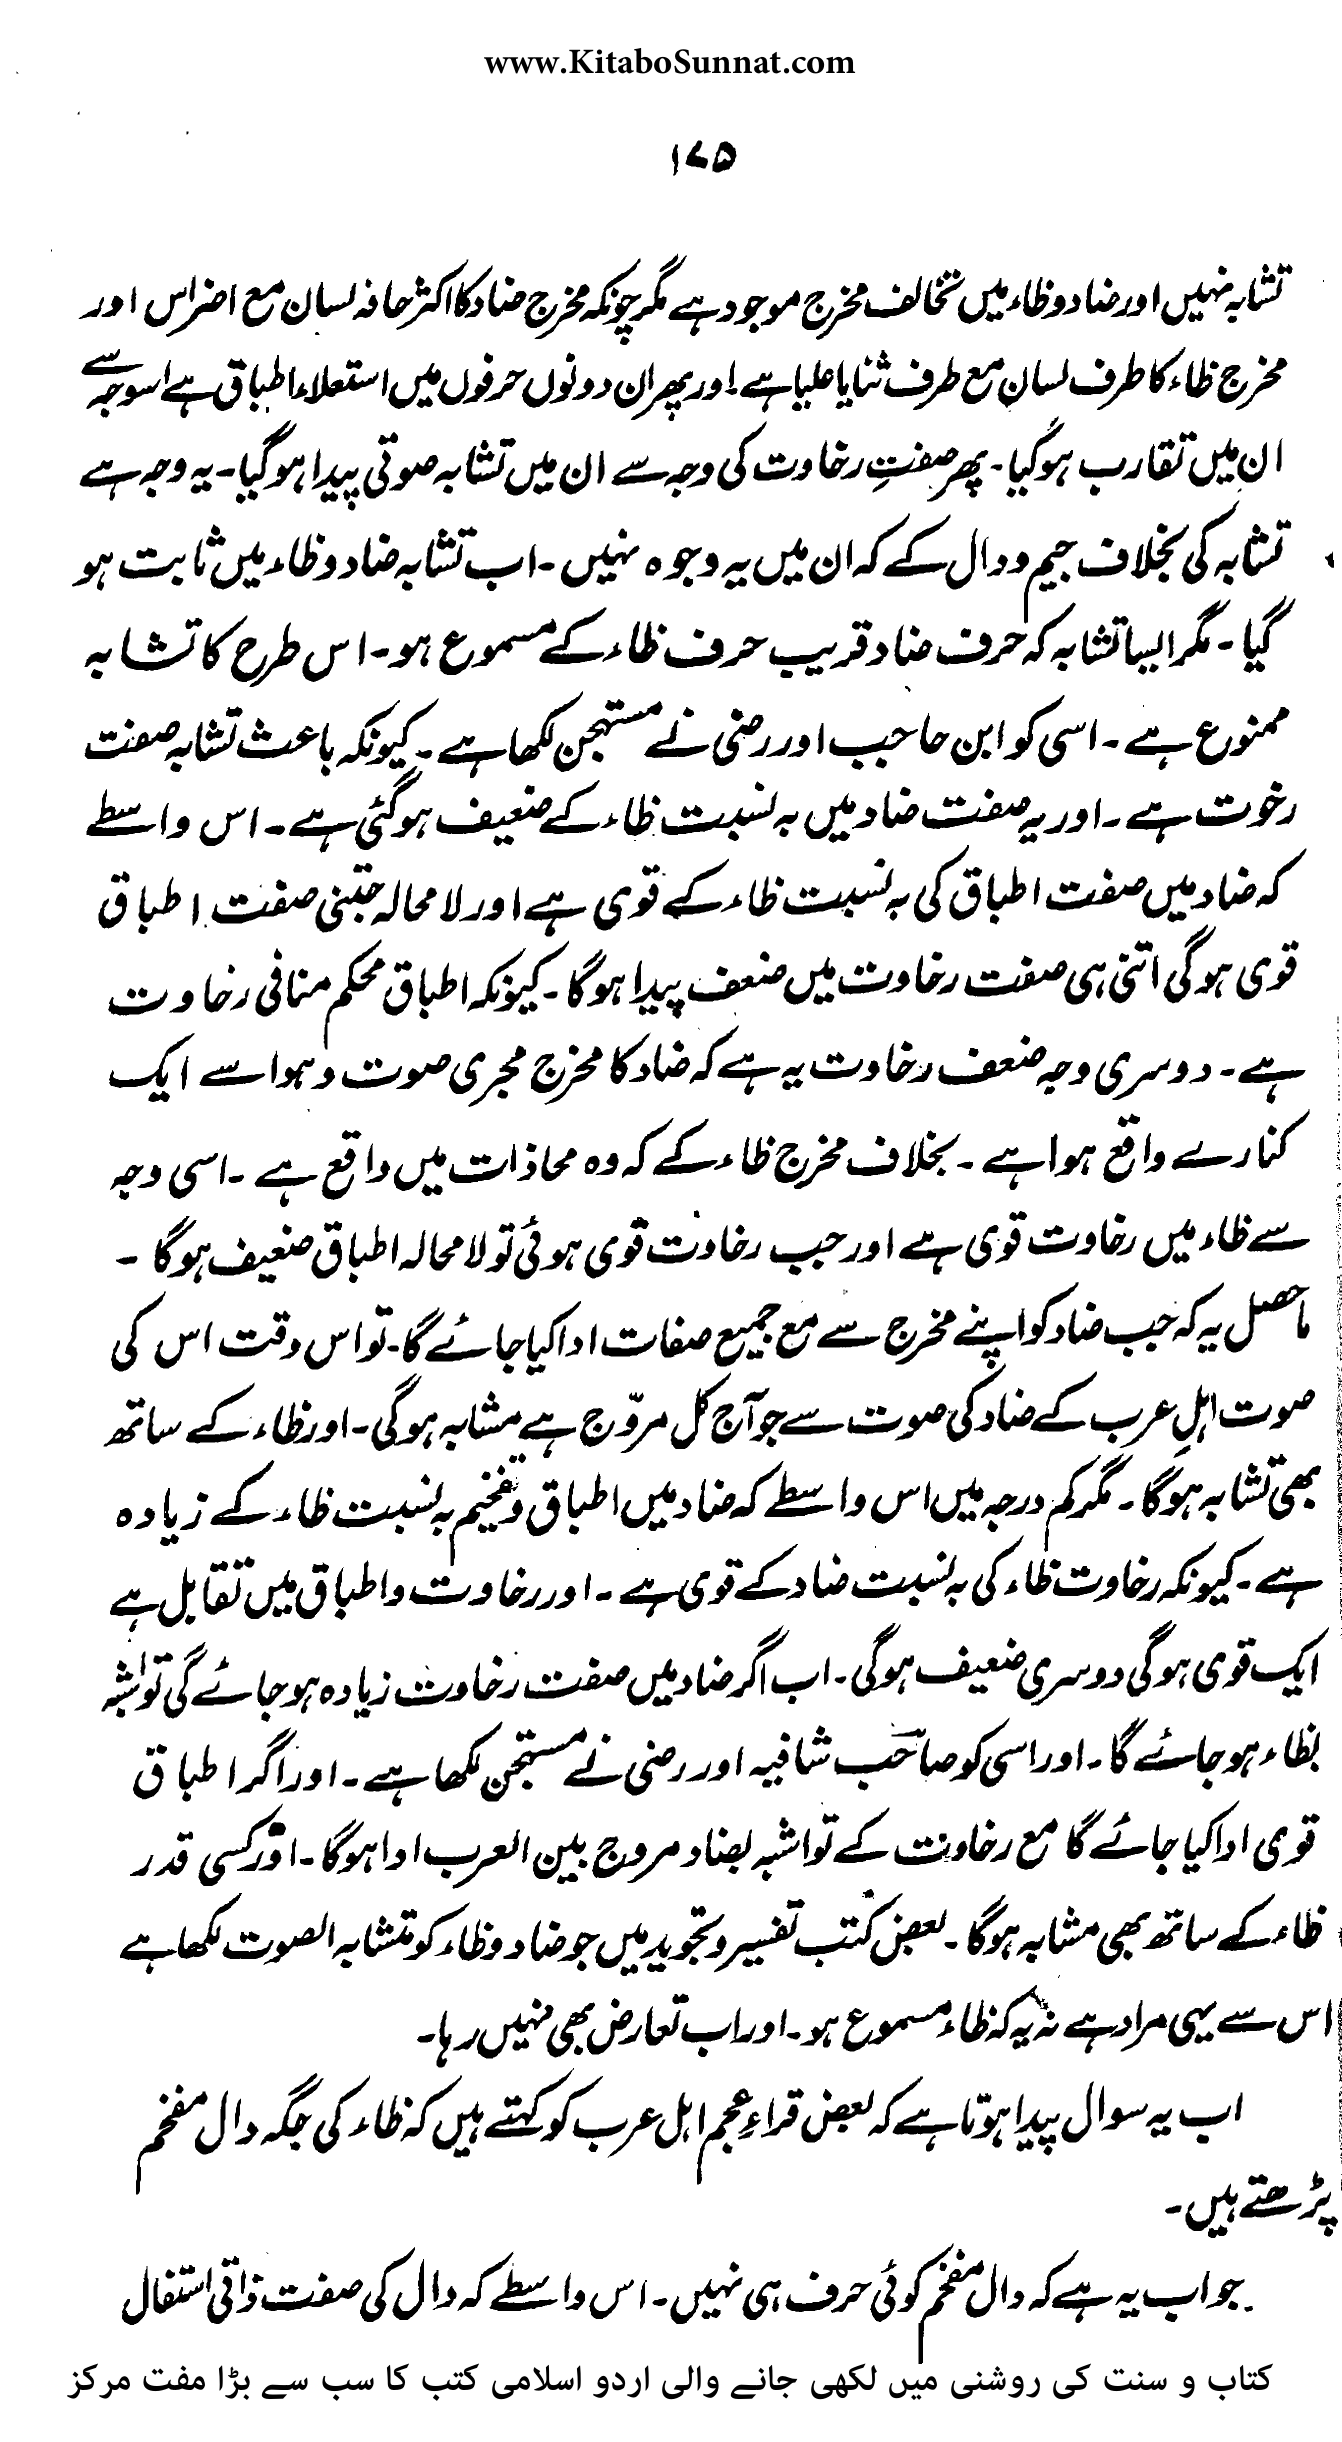 www.KitaboSunnat.com
۱۷۵
تشابہ نہیں اور ضاد و ظاء میں تخالف مخرج موجود ہے مگر چونکہ مخرج ضاد کا اکثر حافہ لسان مع اضراس اور
مخرج ظاء کا طرف لسان مع طرف ثنایا علیا ہے۔ اور پھر ان دونوں حرفوں میں استعلاء اطباق ہے اسوجہ سے
ان میں تقارب ہو گیا۔ پھر صفتِ رخاوت کی وجہ سے ان میں تشابہ صوتی پیدا ہو گیا۔ یہ وجہ ہے
تشابہ کی بخلاف جیم و دال کے کہ ان میں یہ وجوہ نہیں۔ اب تشابہ ضاد و ظاء میں ثابت ہو
گیا۔ مگر ایسا تشابہ کہ حرف ضاد قریب حرف ظاء کے مسموع ہو۔ اس طرح کا تشابہ
ممنوع ہے۔ اسی کو ابن حاجب اور رضی نے مستہجن لکھا ہے۔ کیونکہ باعث تشابہ صفت
رخوت ہے۔ اور یہ صفت ضاد میں بہ نسبت ظاء کے ضعیف ہو گئی ہے۔ اس واسطے
کہ ضاد میں صفت اطباق کی بہ نسبت ظاء کے قوی ہے اور لا محالہ جتنی صفت اطباق
قوی ہوگی اتنی ہی صفت رخاوت میں ضعف پیدا ہوگا۔ کیونکہ اطباق محکم منافی رخاوت
ہے۔ دوسری وجہ ضعف رخاوت یہ ہے کہ ضاد کا مخرج مجری صوت و ہوا سے ایک
کنارے واقع ہوا ہے۔ بخلاف مخرج ظاء کے کہ وہ محاذات میں واقع ہے۔ اسی وجہ
سے ظاء میں رخاوت قوی ہے اور جب رخاوت قوی ہوئی تو لا محالہ اطباق ضعیف ہوگا۔
ماحصل یہ کہ جب ضاد کو اپنے مخرج سے مع جمیع صفات ادا کیا جائے گا۔ تو اس وقت اس کی
صوت اہلِ عرب کے ضاد کی صوت سے جو آج کل مروّج ہے مشابہ ہوگی۔ اور ظاء کے ساتھ
بھی تشابہ ہوگا۔ مگر کم درجہ میں اس واسطے کہ ضاد میں اطباق و تفخیم بہ نسبت ظاء کے زیادہ
ہے۔ کیونکہ رخاوت ظاء کی بہ نسبت ضاد کے قوی ہے۔ اور رخاوت و اطباق میں تقابل ہے
ایک قوی ہوگی دوسری ضعیف ہوگی۔ اب اگر ضاد میں صفت رخاوت زیادہ ہو جائے گی تو اشبہ
بظاء ہو جائے گا۔ اور اسی کو صاحب شافیہ اور رضی نے مستہجن لکھا ہے۔ اور اگر اطباق
قوی ادا کیا جائے گا مع رخاوت کے تو اشبہ بضاد مروج بین العرب ادا ہوگا۔ اور کسی قدر
ظاء کے ساتھ بھی مشابہ ہوگا۔ بعض کتب تفسیر و تجوید میں جو ضاد و ظاء کو متشابہ الصوت لکھا ہے
اس سے یہی مراد ہے نہ یہ کہ ظاء مسموع ہو۔ اور اب تعارض بھی نہیں رہا۔
اب یہ سوال پیدا ہوتا ہے کہ بعض قراءِ عجم اہل عرب کو کہتے ہیں کہ ظاء کی جگہ دال مفخم
پڑھتے ہیں۔
جواب یہ ہے کہ دال مفخم کوئی حرف ہی نہیں۔ اس واسطے کہ دال کی صفت ذاتی استفال
کتاب و سنت کی روشنی میں لکھی جانے والی اردو اسلامی کتب کا سب سے بڑا مفت مرکز